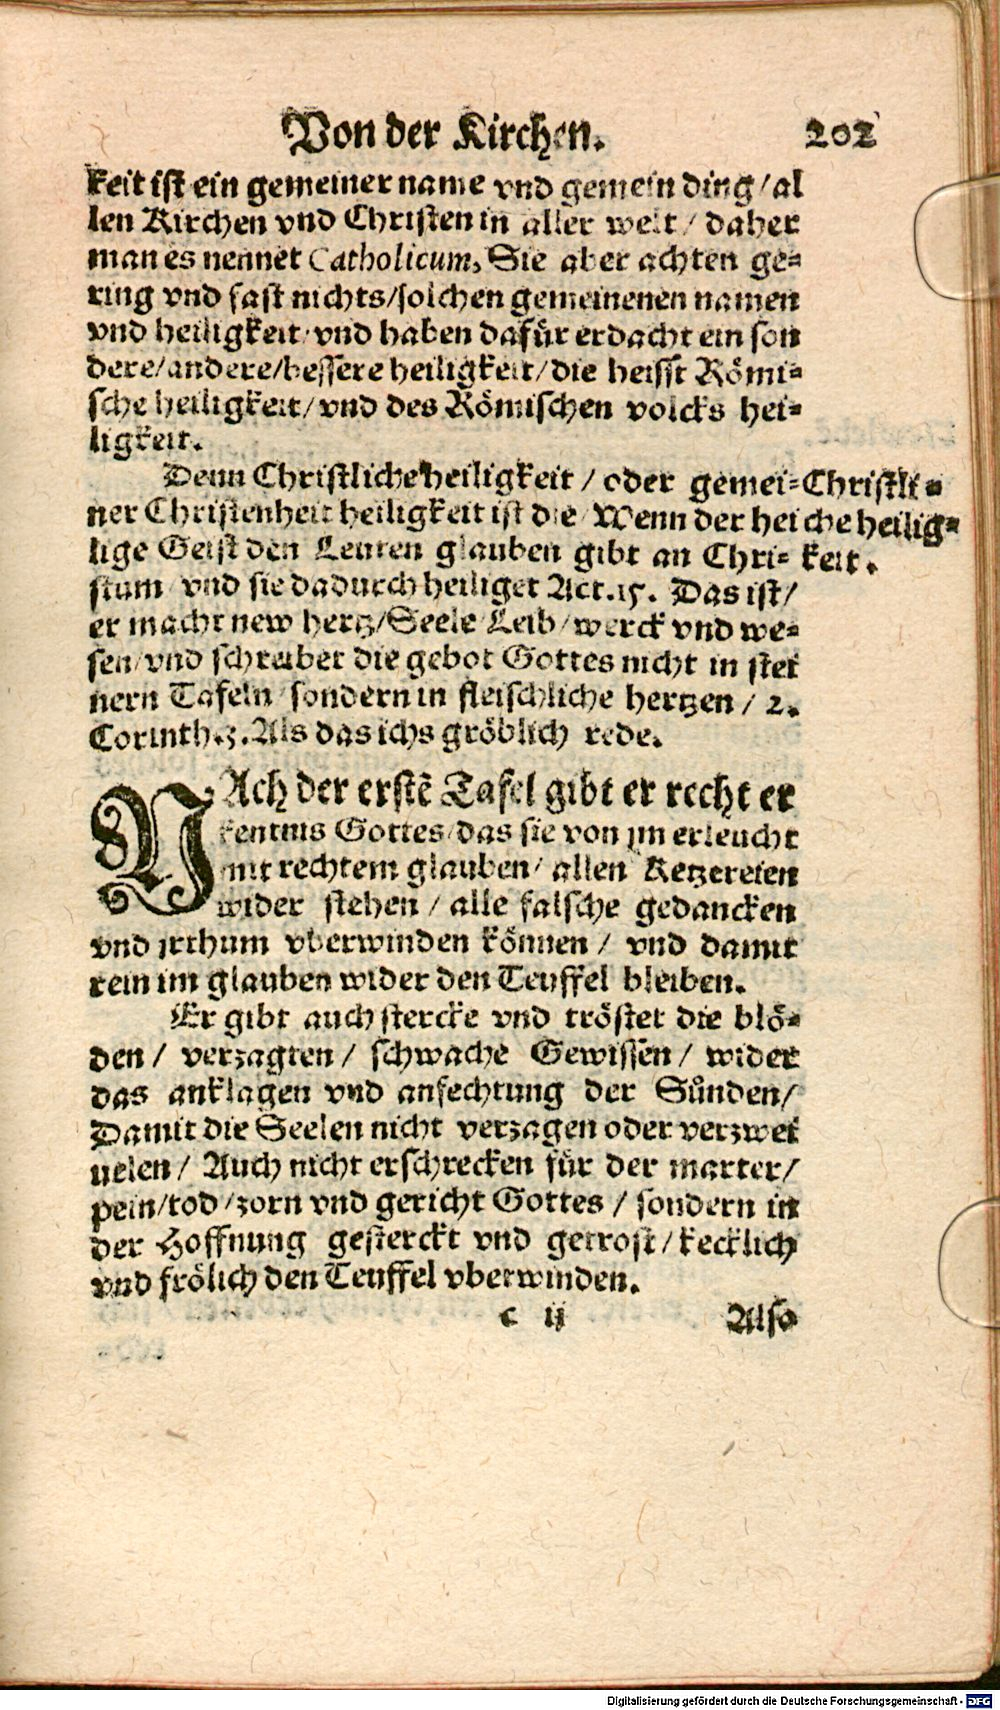 Von der Kirchen. 202
keit ist ein gemeiner name vnd gemein ding / al
len Kirchen vnd Christen in aller welt / daher
man es nennet Catholicum, Sie aber achten ge=
ring vnd fast nichts / solchen gemeinenen namen
vnd heiligkeit / vnd haben dafür erdacht ein son
dere / andere / bessere heiligkeit / die heisst Römi=
sche heiligkeit / vnd des Römischen volcks hei=
ligkeit.
Denn Christliche heiligkeit / oder gemei=
ner Christenheit heiligkeit ist die / Wenn der hei
lige Geist den Leuten glauben gibt an Chri=
stum / vnd sie dadurch heiliget Act. 15. Das ist /
er macht new hertz / Seele / Leib / werck vnd we=
sen / vnd schreiber die gebot Gottes nicht in stei
nern Tafeln / sondern in fleischliche hertzen / 2.
Corinth. 3. Als das ichs gröblich rede.
Christli=
che heilig=
keit.
NAch der erstē Tafel gibt er recht er
kentnis Gottes / das sie von jm erleucht
mit rechtem glauben / allen Ketzereien
wider stehen / alle falsche gedancken
vnd jrthum vberwinden können / vnd damit
rein im glauben wider den Teuffel bleiben.
Er gibt auch stercke vnd tröstet die blö=
den / verzagten / schwache Gewissen / wider
das anklagen vnd anfechtung der Sünden /
Damit die Seelen nicht verzagen oder verzwei
uelen / Auch nicht erschrecken für der marter /
pein / tod / zorn vnd gericht Gottes / sondern in
der Hoffnung gesterckt vnd getrost / kecklich
vnd frölich den Teuffel vberwinden.
c ij Also
Digitalisierung gefördert durch die Deutsche Forschungsgemeinschaft - DFG